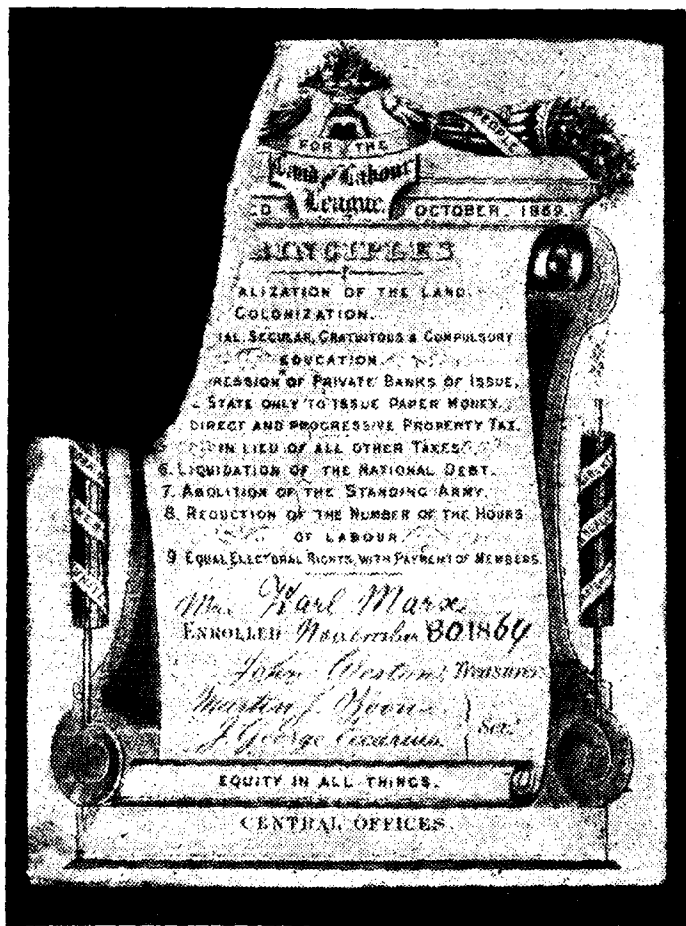 PEOPLE
FOR THE
Land and Labour
League.
ED OCTOBER, 1869.
INCIPLES
ALIZATION OF THE LAND.
COLONIZATION.
IAL, SECULAR, GRATUITOUS & COMPULSORY
EDUCATION.
RESSION OF PRIVATE BANKS OF ISSUE,
STATE ONLY TO ISSUE PAPER MONEY.
DIRECT AND PROGRESSIVE PROPERTY TAX,
IN LIEU OF ALL OTHER TAXES
6. LIQUIDATION OF THE NATIONAL DEBT.
7. ABOLITION OF THE STANDING ARMY.
8. REDUCTION OF THE NUMBER OF THE HOURS
OF LABOUR
9 EQUAL ELECTORAL RIGHTS, WITH PAYMENT OF MEMBERS.
Mr. Karl Marx
ENROLLED November 30 1869
John Weston, Treasurer
Martin J. Boon
J. George Eccarius } Sec.s
EQUITY IN ALL THINGS.
CENTRAL OFFICES